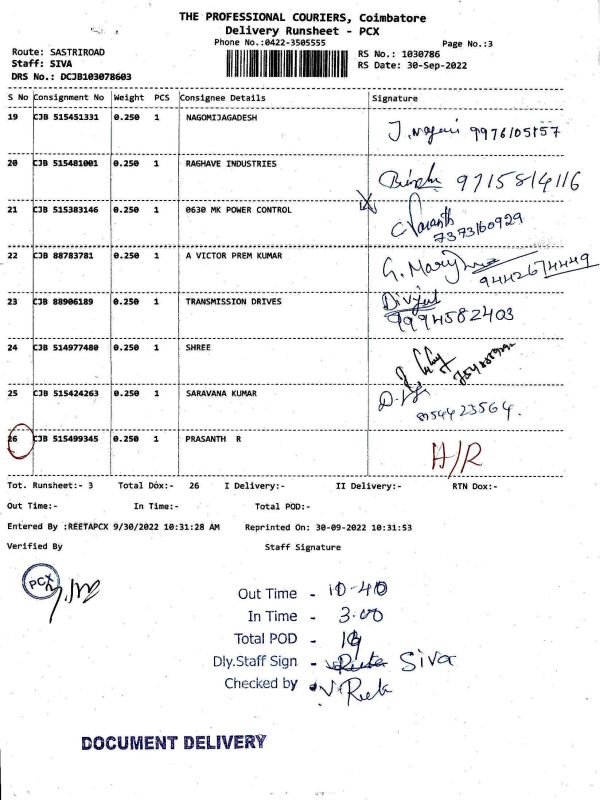 THE PROFESSIONAL COURIERS, Coimbatore
Delivery Runsheet - PCX
Phone No.:0422-3505555
Page No.:3
Route: SASTRIROAD
RS No.: 1030786
Staff: SIVA
RS Date: 30-Sep-2022
DRS No.: DCJB103078603
S No Consignment No Weight PCS Consignee Details Signature
19 CJB 515451331 0.250 1 NAGOMIJAGADESH
20 CJB 515481001 0.250 1 RAGHAVE INDUSTRIES 9715814116
21 CJB 515383146 0.250 1 0630 MK POWER CONTROL
7373160929
22 CJB 88783781 0.250 1 A VICTOR PREM KUMAR G. Mary
9442674449
23 CJB 88906189 0.250 1 TRANSMISSION DRIVES
9994582403
24 CJB 514977480 0.250 1 SHREE
25 CJB 515424263 0.250 1 SARAVANA KUMAR
8754423564.
26 CJB 515499345 0.250 1 PRASANTH R H/R
Tot. Runsheet:- 3 Total Dox:- 26 I Delivery:- II Delivery:- RTN Dox:-
Out Time:- In Time:- Total POD:-
Entered By :REETAPCX 9/30/2022 10:31:28 AM Reprinted On: 30-09-2022 10:31:53
Verified By Staff Signature
PCX
Out Time - 10-40
In Time - 3.00
Total POD -
Dly.Staff Sign - Siva
Checked by - V Reeta
DOCUMENT DELIVERY